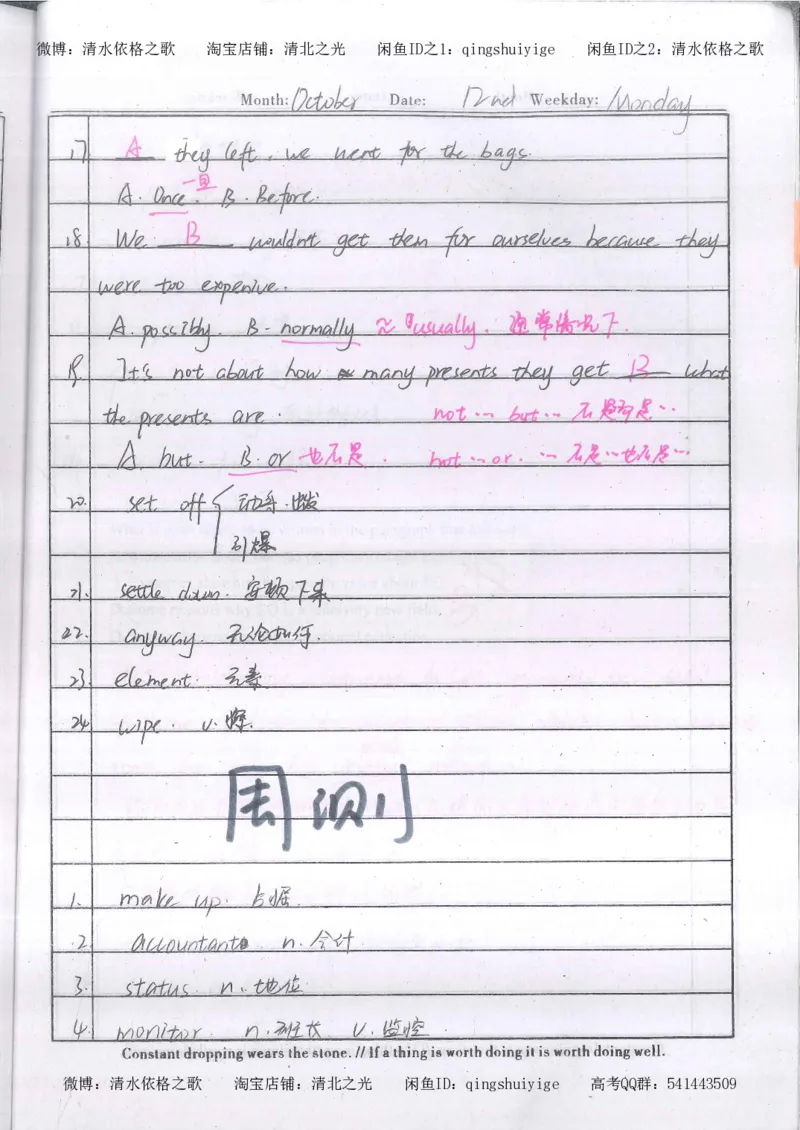 微博：清水依格之歌 淘宝店铺：清北之光 闲鱼ID之1：qingshuiyige 闲鱼ID之2：清水依格之歌
Month: October Date: 12nd Weekday: Monday
17. A they left, we went for the bags.
一旦
A. Once. B. Before.
18. We B wouldn't get them for ourselves because they
were too expenive.
A. possibly. B. normally ≈ usually. 通常情况下.
19. It's not about how many presents they get B what
the presents are. not … but … 不是而是…
A. but. B. or 也不是. not … or … 不是…也不是…
20. set off { 动身.出发
引爆
21. settle down. 安顿下来.
22. anyway. 无论如何.
23. element. 元素
24. wipe. v. 擦.
周测
1. make up. 占据.
2. accountant n. 会计.
3. status n. 地位
4. monitor. n. 班长 v. 监控.
Constant dropping wears the stone. // If a thing is worth doing it is worth doing well.
微博：清水依格之歌 淘宝店铺：清北之光 闲鱼ID：qingshuiyige 高考QQ群：541443509